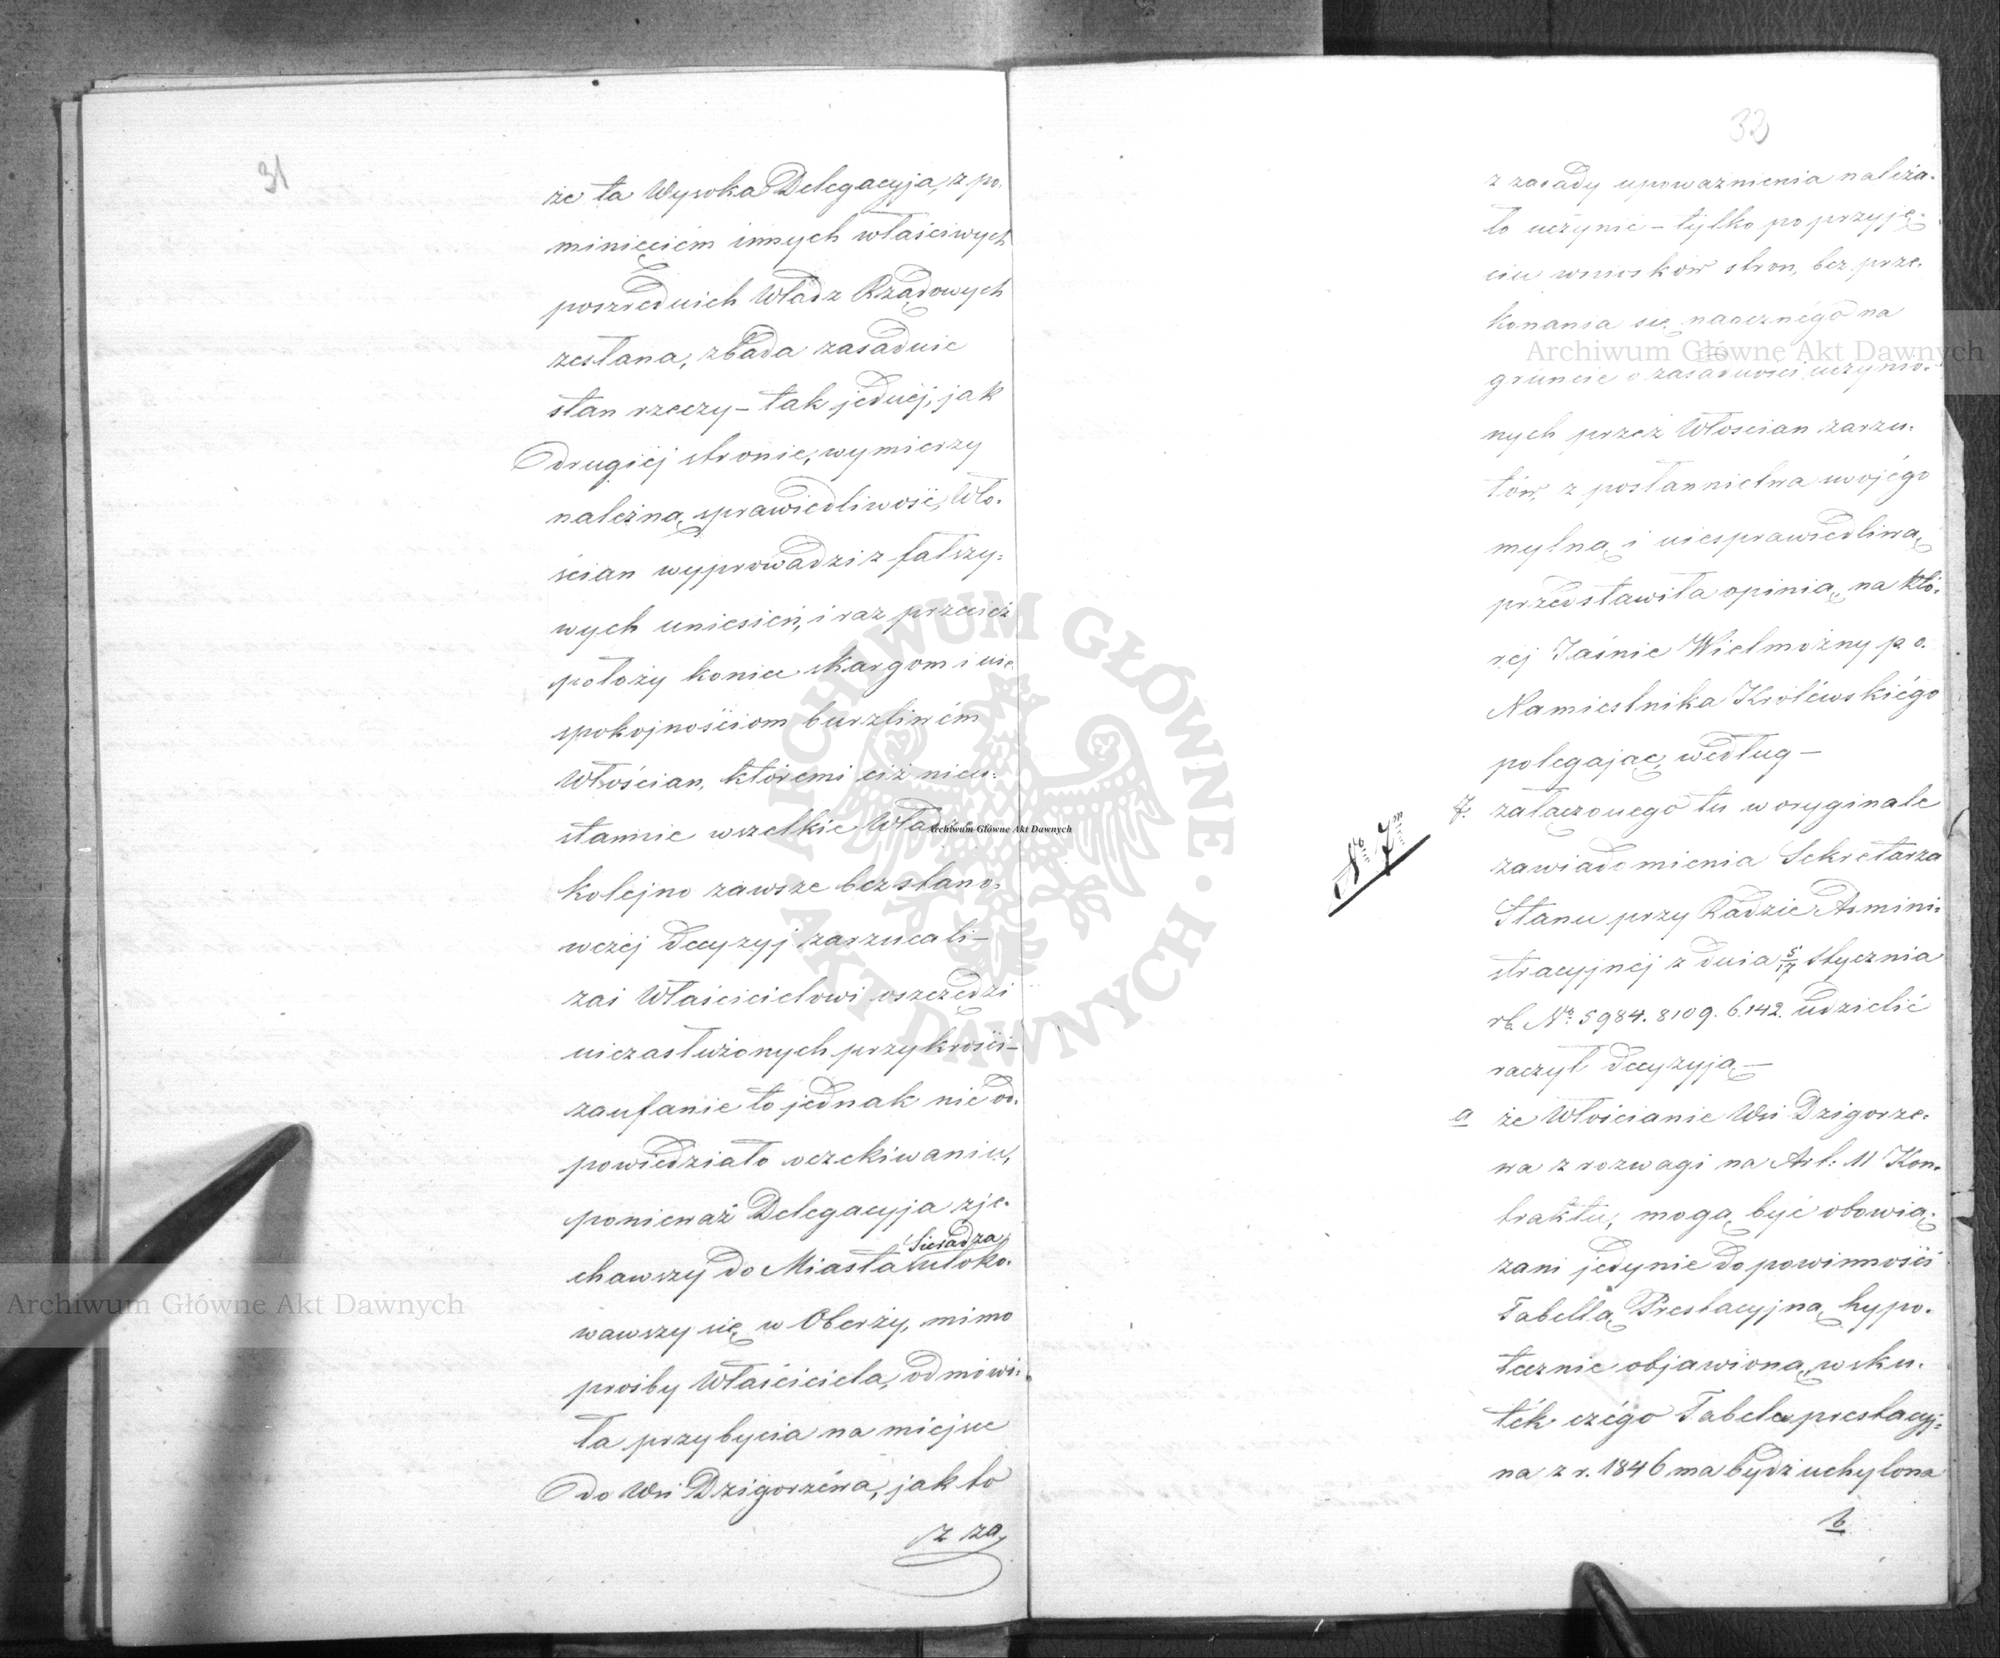 31
że ta Wysoka Delegacyja, z po-
minięciem innych właściwych
pośrednich Władz Rządowych
zesłana, zbada zasadnie
stan rzeczy – tak jednéj, jak
drugiéj stronie, wymierzy
należną sprawiedliwość, Wło-
ścian wyprowadzi z fałszy-
wych uniesień, i raz przecież
położy koniec skargom i nie
spokojnościom burzliwém
Włościan, któremi ciż nieu-
stannie wszelkie Władze
kolejno zawsze bez stano-
wczéj decyzyj zarzucali –
zaś Właścicielowi oszczędzi
niezasłużonych przykrości –
zaufanie to jednak nie od-
powiedziało oczekiwaniu,
ponieważ Delegacyja zje-
chawszy do Miasta Sieradza, uloko-
wawszy się w Oberży, mimo
prośby Właściciela, odmówi-
ła przybycia na miejsce
do Wsi Dzigorzéwa, jak to
z za
33
z zasady upoważnienia należa-
ło uczynić – tylko po przyję-
ciu wniosków stron, bez prze-
konania się naocznégo na
gruncie o zasadności uczynio-
nych przez Włościan zarzu-
tów, z posłannictwa swojégo
mylną i niesprawiedliwą
przedstawiła opinią, na któ-
réj Jaśnie Wielmożny p. o.
Namiestnika Królewskiégo
polegając, według –
No 7m
7. załączonego tu w oryginale
zawiadomienia Sekretarza
Stanu przy Radzie Admini-
stracyjnéj z dnia 5/17 Stycznia
rb. No 5984. 8109. 6.142. udzielić
raczył decyzyją –
a że Włościanie Wsi Dzigorze-
wa z rozwagi na Art: 11 Kon-
traktu, mogą być obowią-
zani jedynie do powinności
Tabellą Prestacyjną, hypo-
tecznie objawioną, w sku-
ték czégo Tabela prestacyj-
na z r. 1846 ma bydź uchylona
b
Archiwum Główne Akt Dawnych
Archiwum Główne Akt Dawnych
Archiwum Główne Akt Dawnych
ARCHIWUM GŁÓWNE · AKT DAWNYCH ·